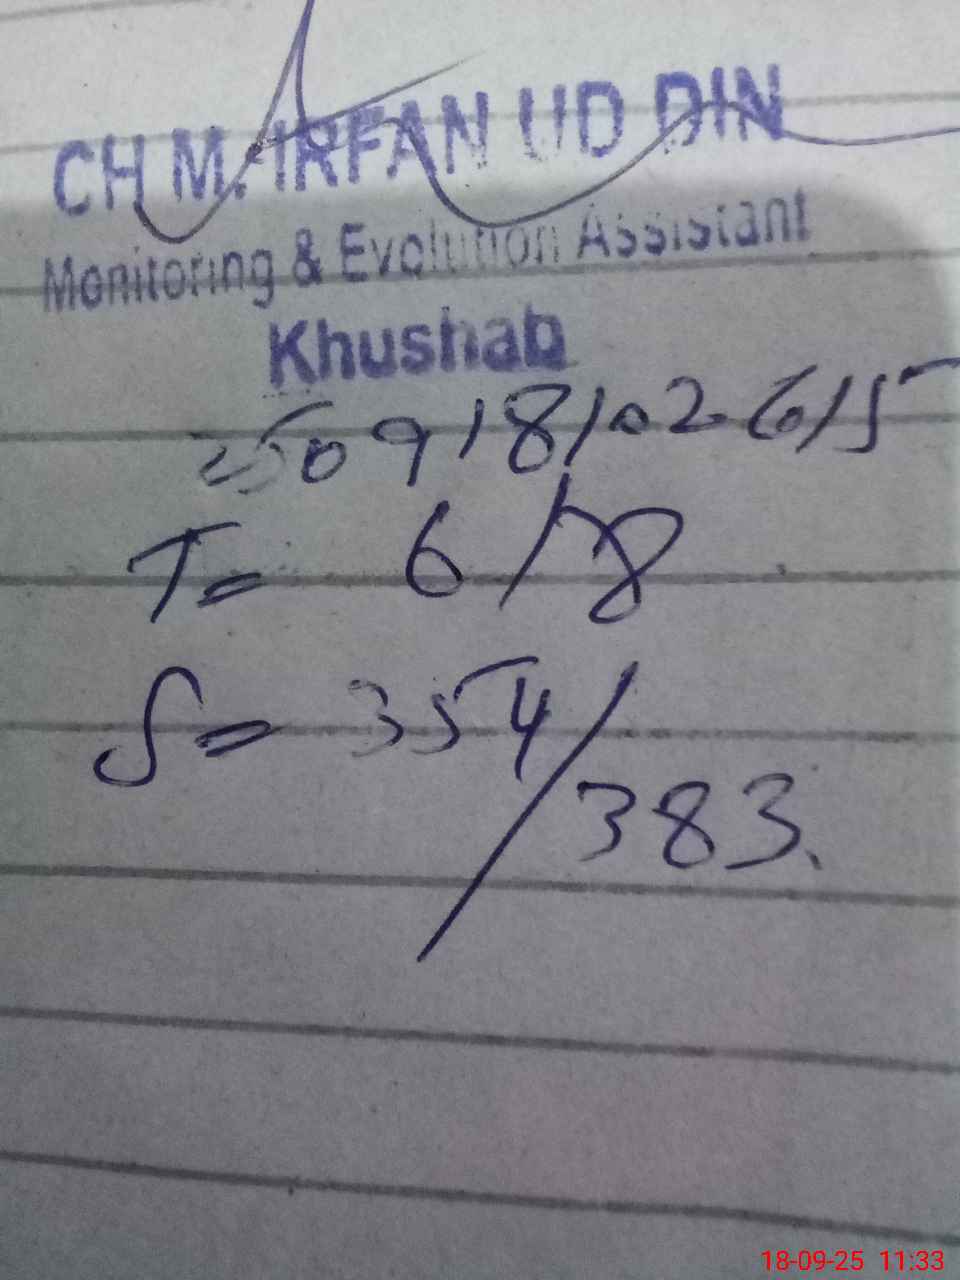 CH M. IRFAN UD DIN
Monitoring & Evolution Assistant
Khushab
250918102615
T= 6/8
S= 354/383.
18-09-25 11:33